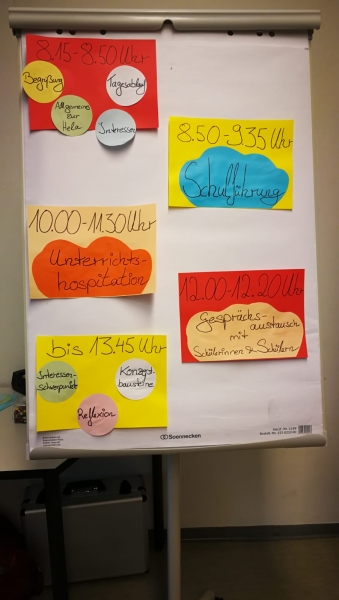 8.15-8.50 Uhr
Begrüßung
Tagesablauf
Allgemeine
zur
Hela
Interessen
8.50-9.35 Uhr
Schulführung
10.00-11.30 Uhr
Unterrichts-
hospitation
12.00-12.20 Uhr
Gesprächs-
austausch
mit
Schülerinnen & Schülern
bis 13.45 Uhr
Interessen-
schwerpunkte
Konzept-
bausteine
Reflexion
Soennecken